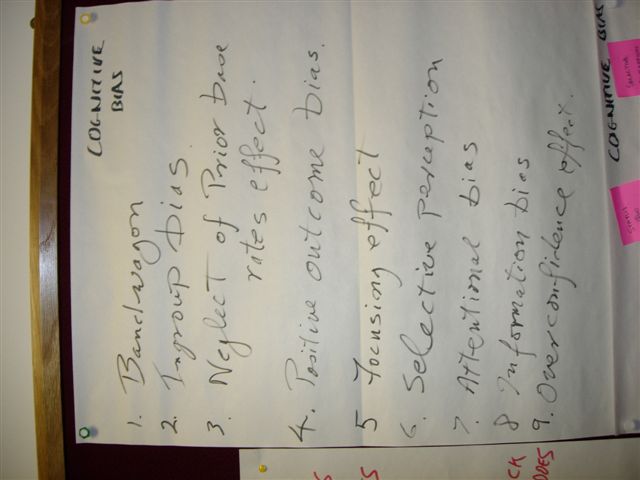 COGNITIVE
BIAS
1. Bandwagon
2. Ingroup bias.
3. Neglect of Prior base
rates effect.
4. Positive outcome bias.
5 Focusing effect
6. Selective perception
7. Attentional bias
8 Information bias
9. Overconfidence effect.
COGNITIVE BIAS
SELECTIVE
CK